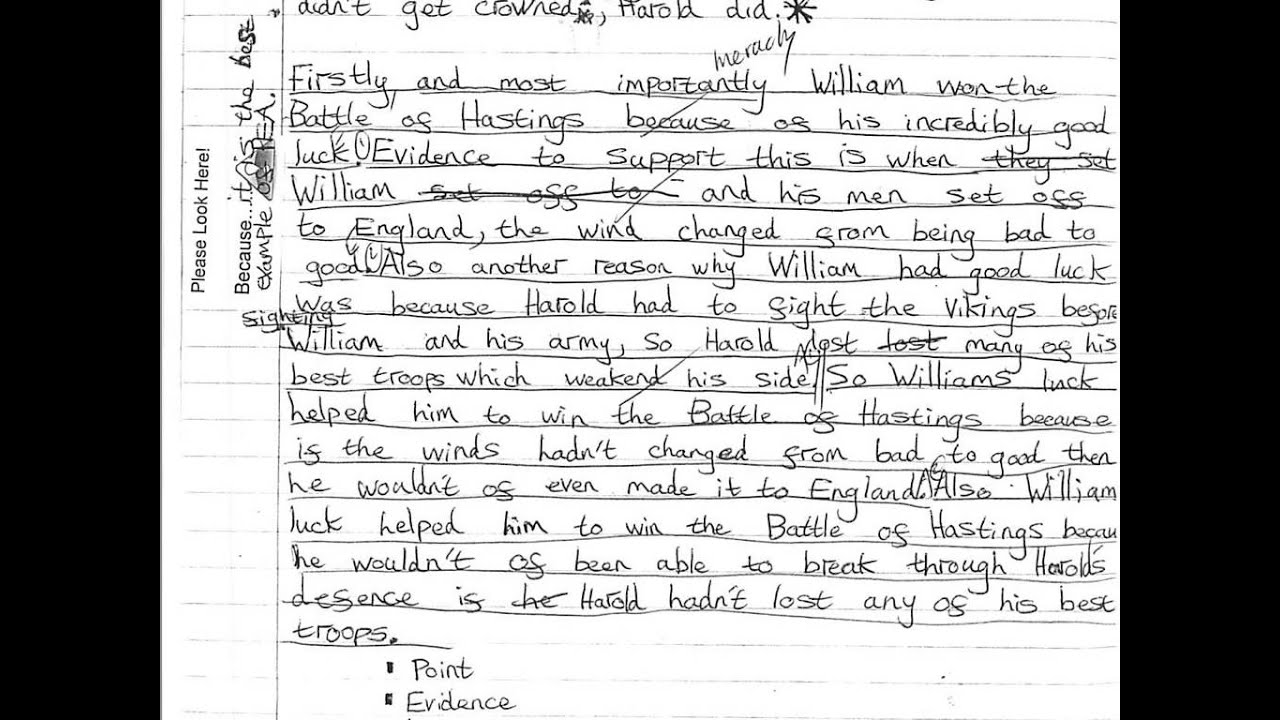 didn't get crowned, Harold did.*
meracly
Firstly, and most importantly William won the
Battle of Hastings because of his incredibly good
luck. Evidence to support this is when they set
William set off to - and his men set off
to England, the wind changed from being bad to
good. Also another reason why William had good luck
was because Harold had to fight the Vikings before
fighting
William and his army, so Harold lost lost many of his
best troops which weakend his side. So Williams luck
helped him to win the Battle of Hastings because
if the winds hadn't changed from bad to good then
he wouldn't of even made it to England. Also William
luck helped him to win the Battle of Hastings becau
he wouldn't of been able to break through Harold's
defence if he Harold hadn't lost any of his best
troops.
Point
Evidence
Please Look Here!
Because...it is the best
example of PEA.